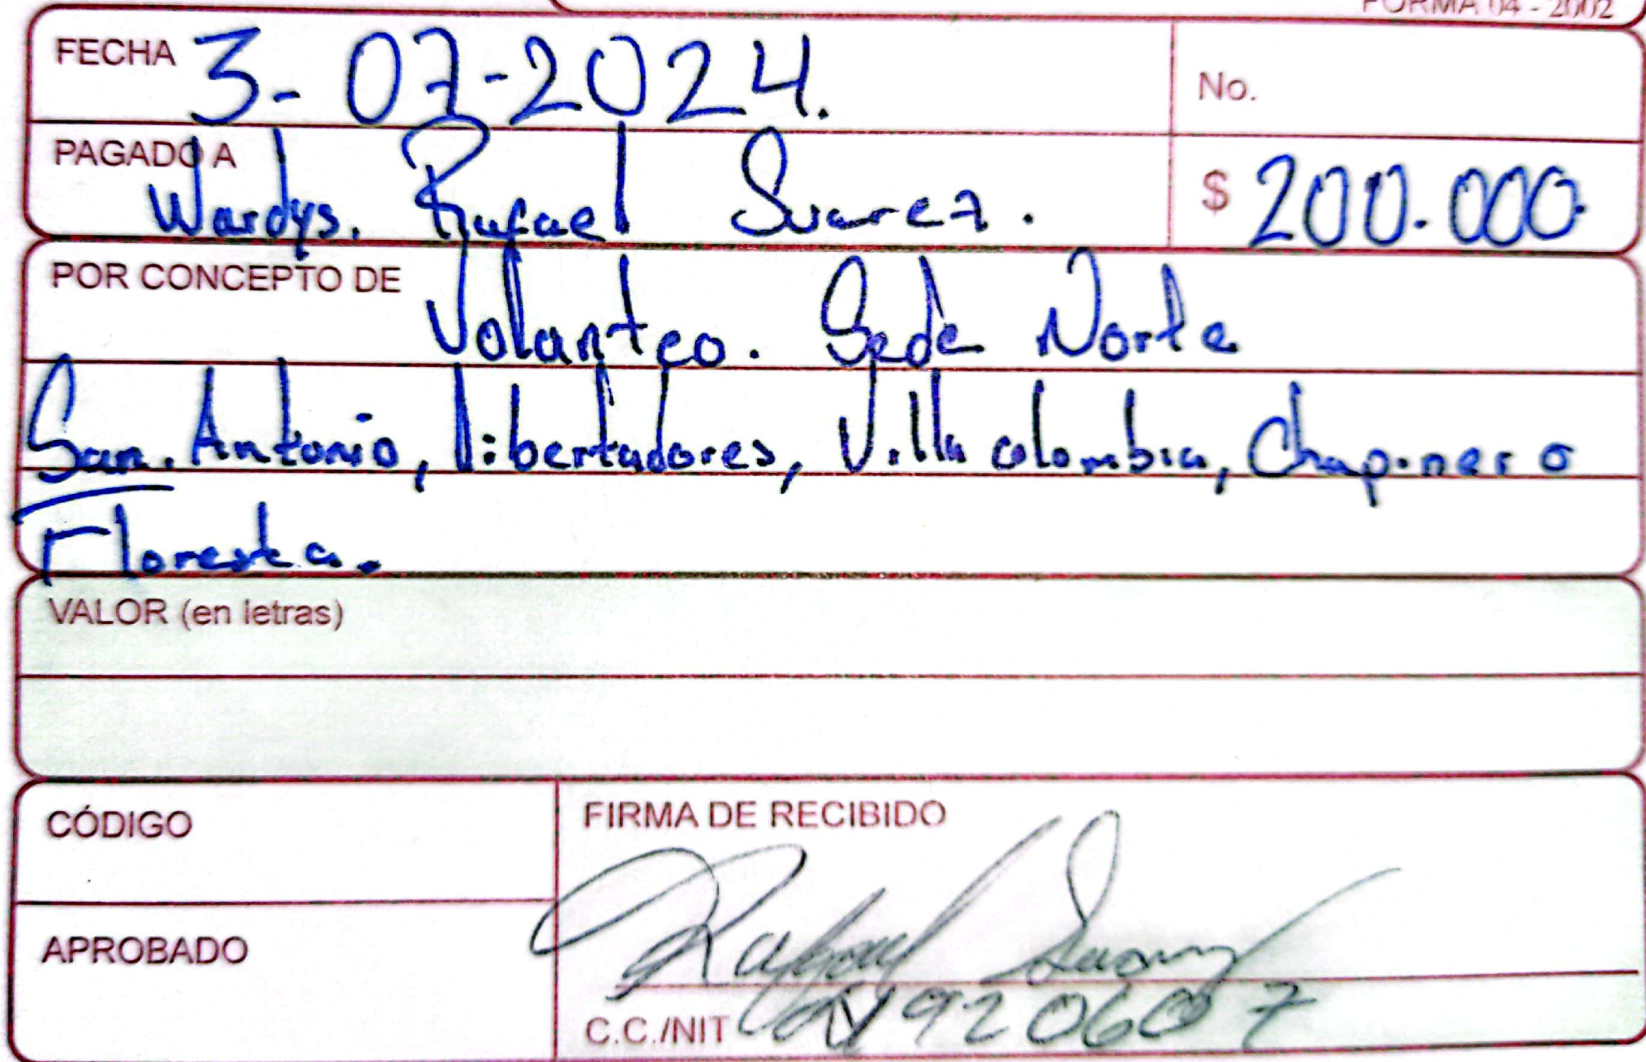 FORMA 04 - 2002
FECHA 3-07-2024.
No.
PAGADO A
Wardys. Rafael Suarez.
$ 200.000
POR CONCEPTO DE
Volanteo. Sede Norte
San. Antonio, libertadores, Villa colombia, Chapinero
Floresta.
VALOR (en letras)
CÓDIGO
FIRMA DE RECIBIDO
Rafael Suarez
APROBADO
C.C./NIT